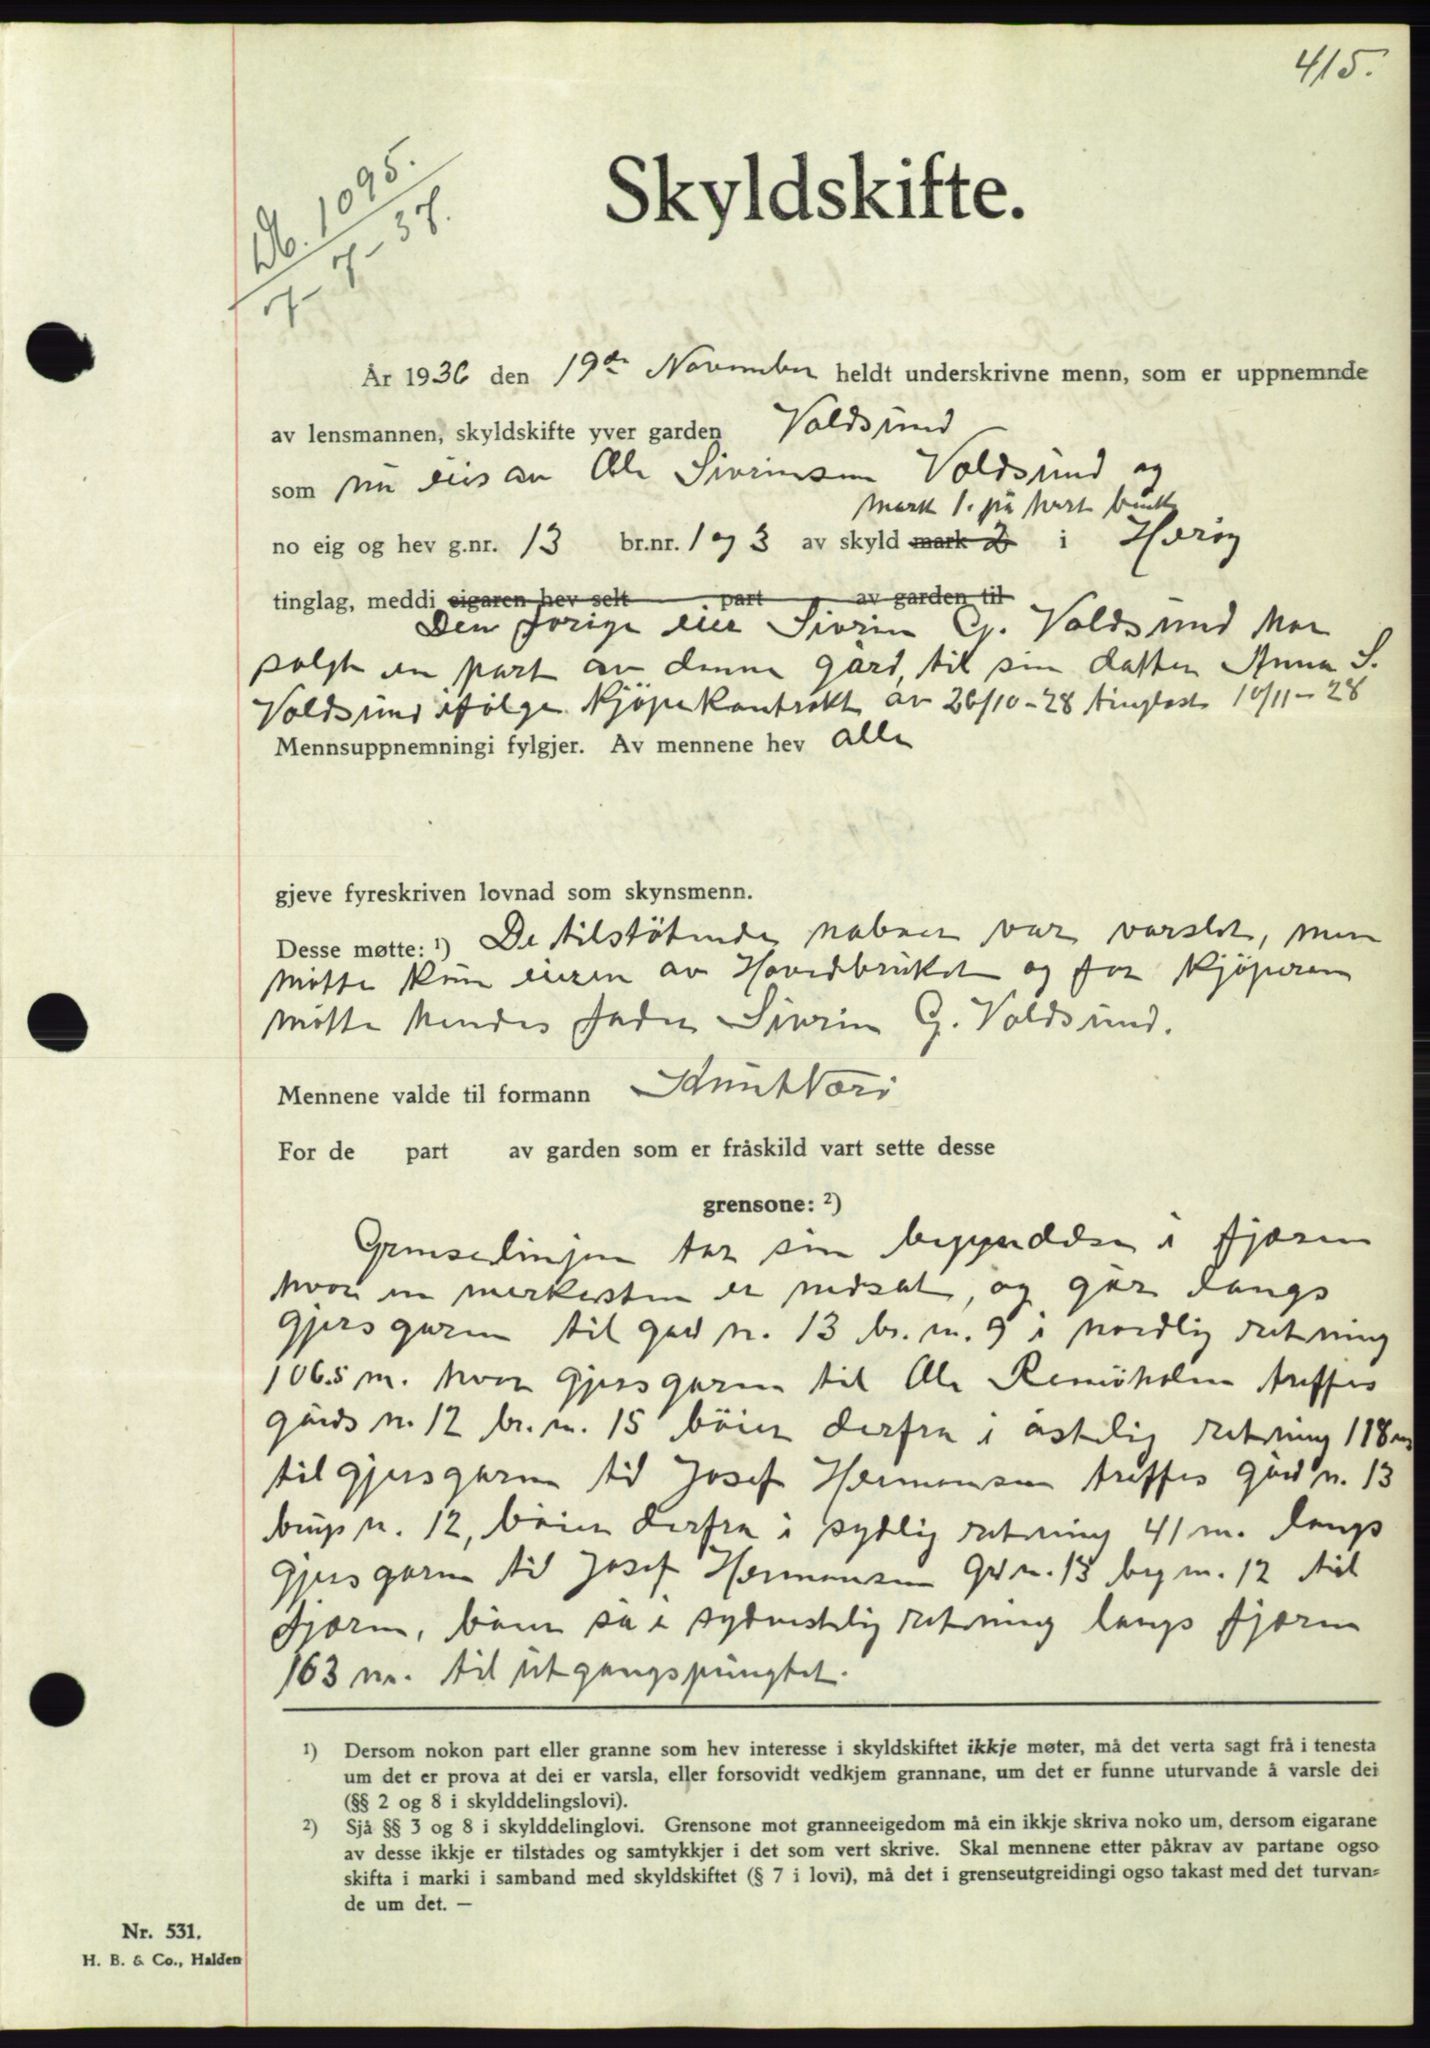 415.
Skyldskifte.
Db. 1095.
7-7-37.
År 1936 den 19de November heldt underskrivne menn, som er uppnemnde
av lensmannen, skyldskifte yver garden Voldsund
som nu eies av Ole Sivrinsen Voldsund og
mark 1. på hvert bruk
no eig og hev g.nr. 13 br.nr. 1 og 3 av skyld mark 2 i Herøy
tinglag, meddi eigaren hev selt part av garden til
Den forige eier Sivrin G. Voldsund har
solgt en part av denne gård, til sin datter Anna S.
Voldsund ifølge kjöpekontrakt av 26/10-28 tinglest 10/11-28
Mennsuppnemningi fylgjer. Av mennene hev alle
gjeve fyreskriven lovnad som skynsmenn.
Desse møtte: 1) De tilstötende naboer var varslet, men
mötte kun eieren av Hovedbruket og for kjöperen
mötte hendes fader Sivrin G. Voldsund.
Mennene valde til formann Knut Nærö
For de part av garden som er fråskild vart sette desse
grensone: 2)
Grenselinjen tar sin begyndelse i fjæren
hvor en merkesten er nedsat, og går langs
gjersgaren til gård n. 13 br. n. 9 i nordlig retning
106.5 m. hvor gjersgaren til Ole Remöholm treffes
gårds n. 12 br. n. 15 böier derfra i östelig retning 118 m
til gjersgaren til Josef Hermansen treffes gård n. 13
brugs n. 12, böier derfra i sydlig retning 41 m. langs
gjersgaren til Josef Hermansen gd n. 13 brg n. 12 til
fjæren, böier så i sydvestlig retning langs fjæren
163 m. til utgangspungtet.
1) Dersom nokon part eller granne som hev interesse i skyldskiftet ikkje møter, må det verta sagt frå i tenesta
um det er prova at dei er varsla, eller forsovidt vedkjem grannane, um det er funne uturvande å varsle dei
(§§ 2 og 8 i skylddelingslovi).
2) Sjå §§ 3 og 8 i skylddelinglovi. Grensone mot granneeigedom må ein ikkje skriva noko um, dersom eigarane
av desse ikkje er tilstades og samtykkjer i det som vert skrive. Skal mennene etter påkrav av partane ogso
skifta i marki i samband med skyldskiftet (§ 7 i lovi), må det i grenseutgreidingi ogso takast med det turvan=
de um det. —
Nr. 531.
H. B. & Co., Halden